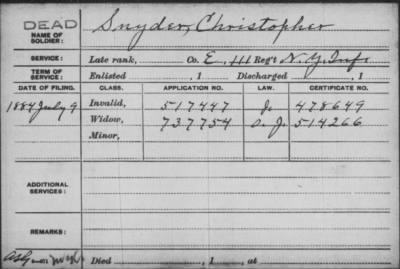 DEAD
NAME OF SOLDIER: Snyder, Christopher
SERVICE: Late rank, Co. E, 111 Reg't N.Y. Inf.
TERM OF SERVICE: Enlisted , 1 Discharged , 1
DATE OF FILING. CLASS. APPLICATION NO. LAW. CERTIFICATE NO.
1884 July 9 Invalid, 517447 J. 478649
Widow, 737754 O.J. 514266
Minor,
ADDITIONAL SERVICES:
REMARKS:
Died , 1 , at